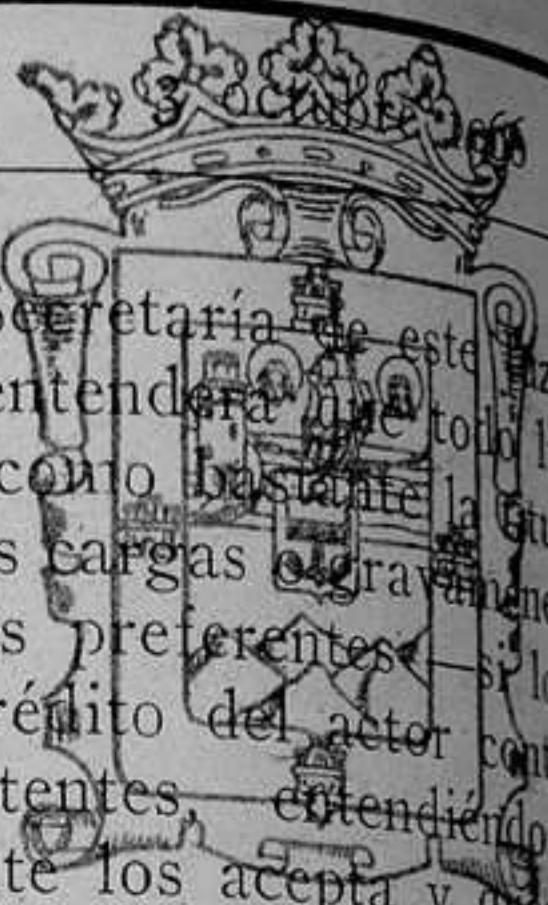 3 octubre
Secretaría de este
entenderá que todo l
como bastante la titu
s cargas o gravámene
s preferentes —si lo
rédito del actor cont
tentes entendiéndo
te los acepta y